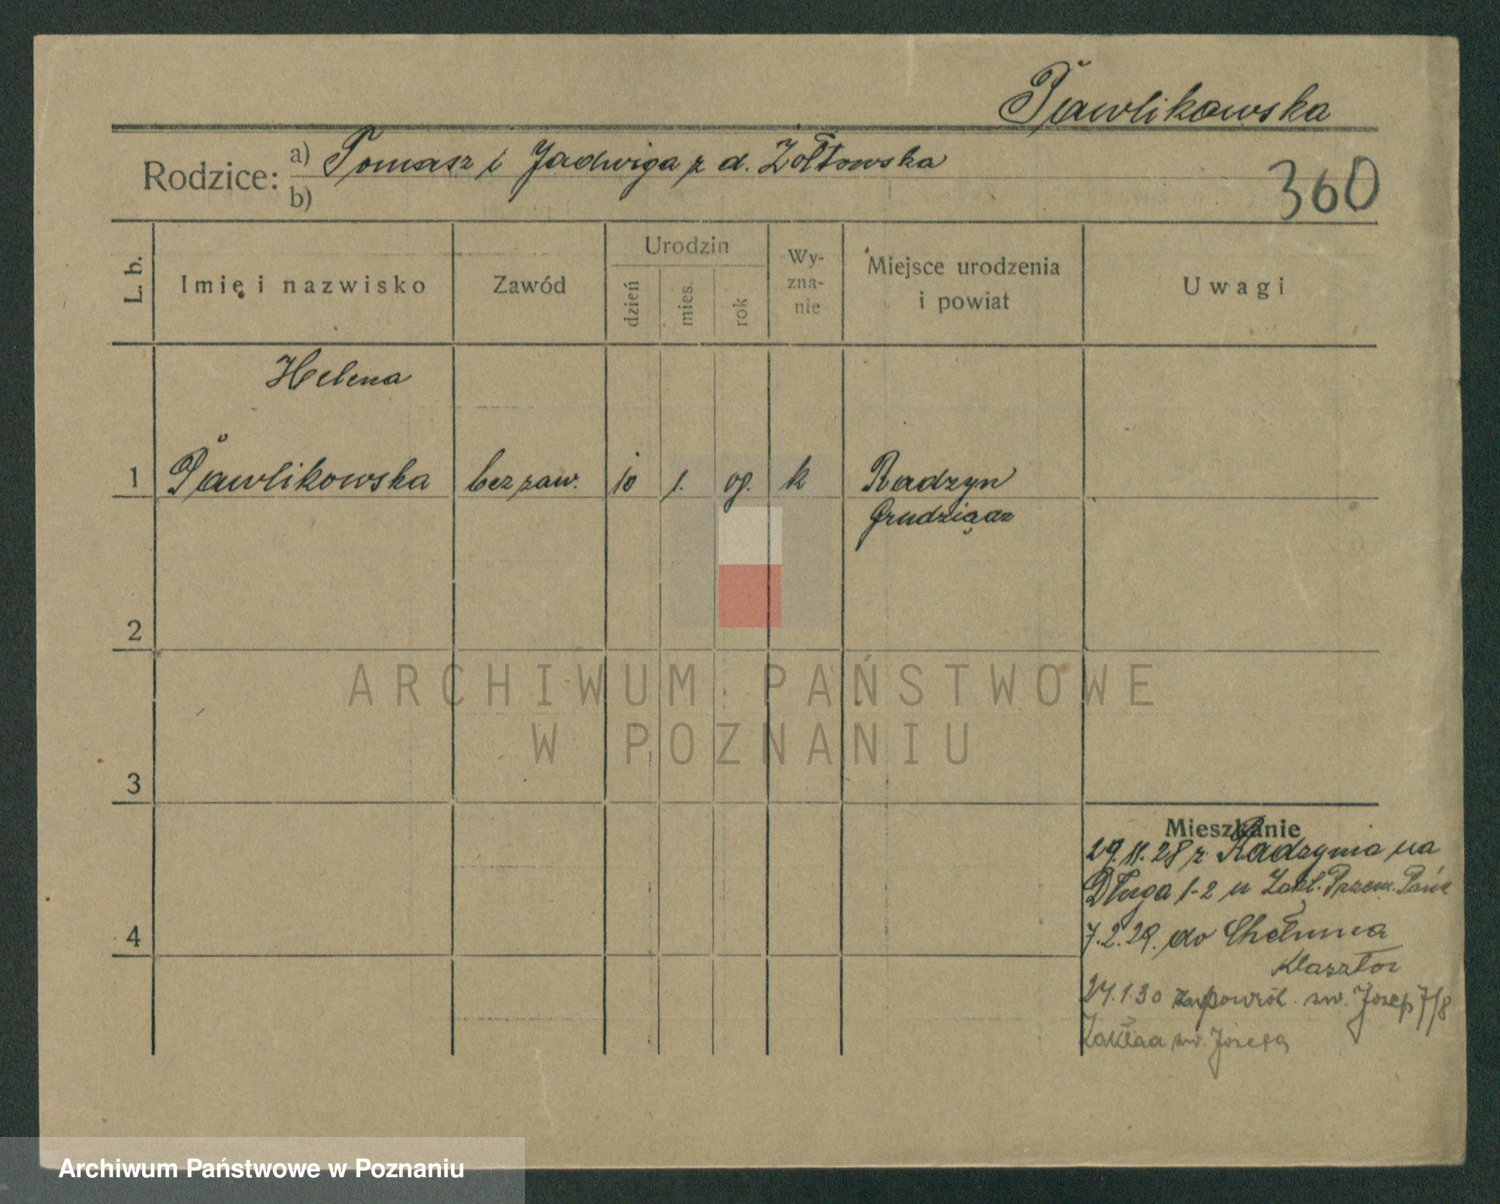 Pawlikowska
Rodzice: a) Tomasz i Jadwiga z d. Żółtowska
b)
360
L. b.
Imię i nazwisko
Zawód
Urodzin
dzień
mies.
rok
Wy-
zna-
nie
Miejsce urodzenia
i powiat
Uwagi
Helena
1 Pawlikowska bez zaw. 10 1. 09. k Radzyn
Grudziądz
2
3
4
Mieszkanie
29.11.28 z Radzynia na
Długa 1-2 u Zakł. Przem.
7.2.29. do Chełmna
Klasztor
27.1.30 powrót. św. Józef 7/8
Zakład św. Józefa
ARCHIWUM PAŃSTWOWE
W POZNANIU
Archiwum Państwowe w Poznaniu